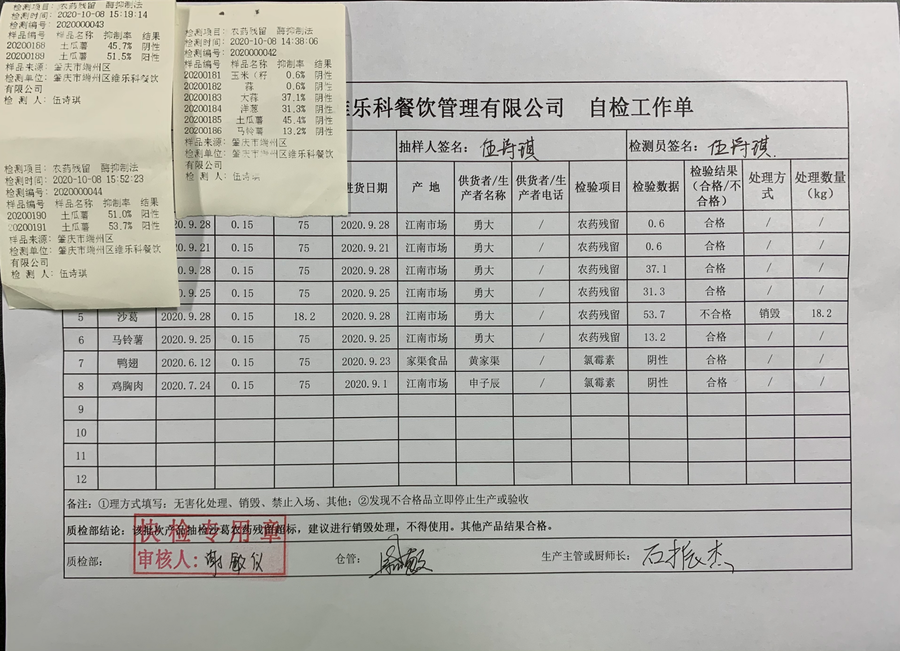 检测项目: 农药残留 酶抑制法
检测时间: 2020-10-08 15:19:14
检测编号: 2020000043
样品编号 样品名称 抑制率 结果
20200168 土瓜薯 45.7% 阴性
20200189 土瓜薯 51.5% 阳性
样品来源: 肇庆市端州区
检测单位: 肇庆市端州区维乐科餐饮
有限公司
检 测 人: 伍诗琪
检测项目: 农药残留 酶抑制法
检测时间: 2020-10-08 15:52:23
检测编号: 2020000044
样品编号 样品名称 抑制率 结果
20200190 土瓜薯 51.0% 阳性
20200191 土瓜薯 53.7% 阳性
样品来源: 肇庆市端州区
检测单位: 肇庆市端州区维乐科餐饮
有限公司
检 测 人: 伍诗琪
检测项目: 农药残留 酶抑制法
检测时间: 2020-10-08 14:38:06
检测编号: 2020000042
样品编号 样品名称 抑制率 结果
20200181 玉米（籽 0.6% 阴性
20200182 蒜 0.6% 阴性
20200183 大蒜 37.1% 阴性
20200184 洋葱 31.3% 阴性
20200185 土瓜薯 45.4% 阴性
20200186 马铃薯 13.2% 阴性
样品来源: 肇庆市端州区
检测单位: 肇庆市端州区维乐科餐饮
有限公司
检 测 人: 伍诗琪
维乐科餐饮管理有限公司 自检工作单
抽样人签名: 伍诗琪 检测员签名: 伍诗琪
进货日期 产 地 供货者/生产者名称 供货者/生产者电话 检验项目 检验数据 检验结果（合格/不合格） 处理方式 处理数量（kg）
20.9.28 0.15 75 2020.9.28 江南市场 勇大 / 农药残留 0.6 合格 / /
20.9.21 0.15 75 2020.9.21 江南市场 勇大 / 农药残留 0.6 合格 / /
20.9.28 0.15 75 2020.9.28 江南市场 勇大 / 农药残留 37.1 合格 / /
20.9.25 0.15 75 2020.9.25 江南市场 勇大 / 农药残留 31.3 合格 / /
5 沙葛 2020.9.28 0.15 18.2 2020.9.28 江南市场 勇大 / 农药残留 53.7 不合格 销毁 18.2
6 马铃薯 2020.9.25 0.15 75 2020.9.25 江南市场 勇大 / 农药残留 13.2 合格 / /
7 鸭翅 2020.6.12 0.15 75 2020.9.23 家渠食品 黄家渠 / 氯霉素 阴性 合格 / /
8 鸡胸肉 2020.7.24 0.15 75 2020.9.1 江南市场 申子辰 / 氯霉素 阴性 合格 / /
9
10
11
12
备注: ①理方式填写: 无害化处理、销毁、禁止入场、其他; ②发现不合格品立即停止生产或验收
质检部结论: 该批次产品抽检沙葛农药残留超标, 建议进行销毁处理, 不得使用。其他产品结果合格。
快检专用章
质检部: 审核人: 谢敏仪 仓管: 生产主管或厨师长: 石振杰